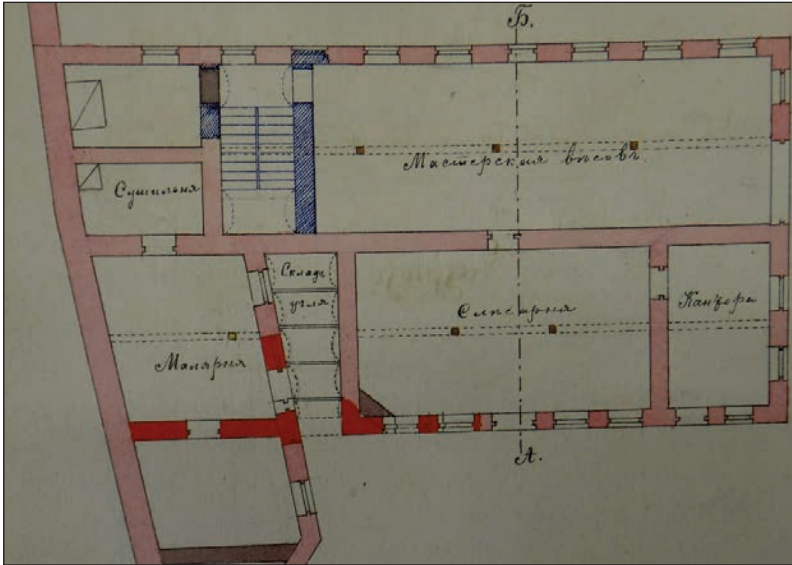 Б.
Мастерская вѣсовъ.
Сушильня
Складъ
угля
Слесарня
Кантора
Малярня
А.